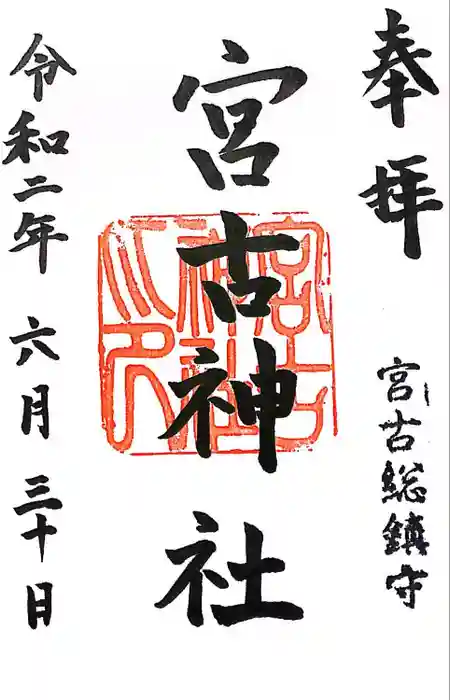 奉拝
宮古総鎮守
宮古神社
令和二年 六月 三十日